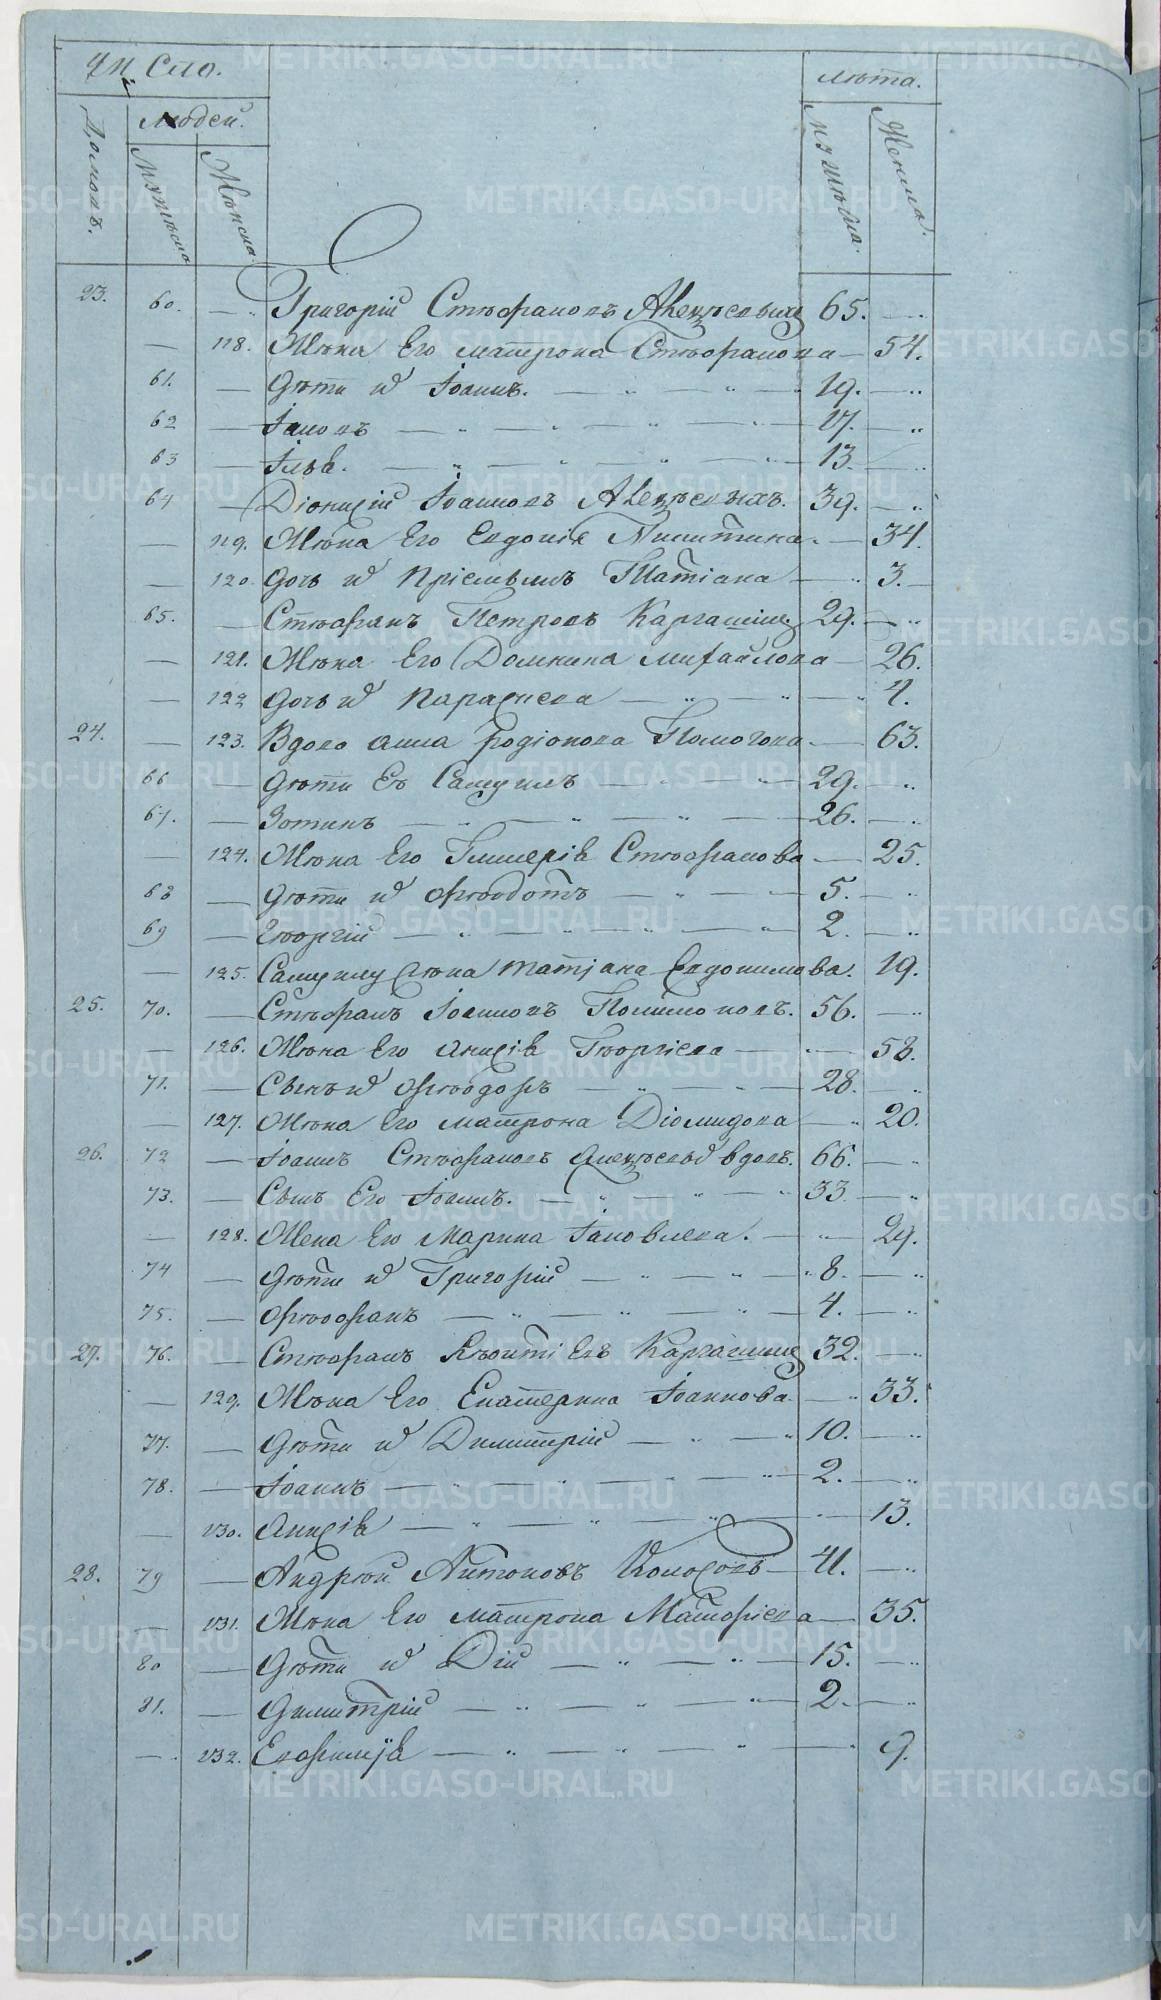 Число.
Людей.
Домовъ.
Мужеска
Женска
Лѣта.
Мужеска.
Женска.
23. 60. — Григорій Стефановъ 65. —
— 118. Жена Его Матрона Стефанова — 54.
61. — Дѣти их Іоаннъ. — 19. —
62 — Іаковъ — 17. —
63 — Илья. — 13 —
64 — Діонисій Іоанновъ 39. —
— 119. Жена Его Евдокія Никитина. — 34.
— 120. Дочь их Татіана — 3. —
65. — Стефанъ Петровъ 29. —
— 121. Жена Его Домникіа Михайлова — 26.
— 122 Дочь их Параскева — 4.
24. — 123. Вдова Анна Родіонова — 63.
66 — Дѣти Ея Самуилъ — 29. —
67. — Зотикъ — 26. —
— 124. Жена Его Гликерія Стефанова — 25.
68 — Дѣти их Феодотъ — 5. —
69 — Георгій — 2. —
— 125. Самуилу жена Татіана Евдокимова. 19.
25. 70. — Стефанъ Іоанновъ 56. —
— 126. Жена Его Анисія Георгіева — 58.
71. — Сынъ их Феодоръ — 28. —
— 127. Жена Его Матрона Діомидова — 20.
26. 72 — Іоаннъ Стефановъ вдовъ. 66. —
73. — Сынъ Его Іоаннъ. — 33 —
— 128. Жена Его Марина Іаковлева. — 29.
74 — Дѣти их Григорій — 8. —
75. — Феофанъ — 4. —
27. 76. — Стефанъ 32. —
— 129. Жена Его Екатерина Іоаннова — 33.
77. — Дѣти их Димитрій — 10. —
78. — Іоаннъ — 2. —
— 130. Анисія — 13.
28. 79 — Андрей Антоновъ Колосовъ — 41. —
— 131. Жена Его Матрона Матфіева — 35.
80 — Дѣти их Дій — 15. —
81. — Димитрій — 2. —
— 132. Евфимія — 9.
METRIKI.GASO-URAL.RU